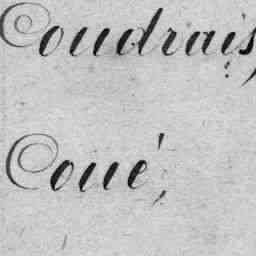 Coudrais,
Coué,